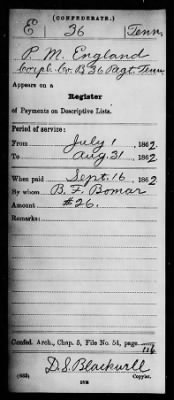 (CONFEDERATE.)
E 36 Tenn.
P. M. England
Corpl. Co. B 36 Regt. Tenn
Appears on a
Register
of Payments on Descriptive Lists.
Period of service:
From July 1, 1862
To Aug. 31, 1862
When paid Sept. 16, 1862
By whom B. F. Bomar
Amount $26.
Remarks:
Confed. Arch., Chap. 5, File No. 54, page 116
D. S. Blackwell
Copyist.